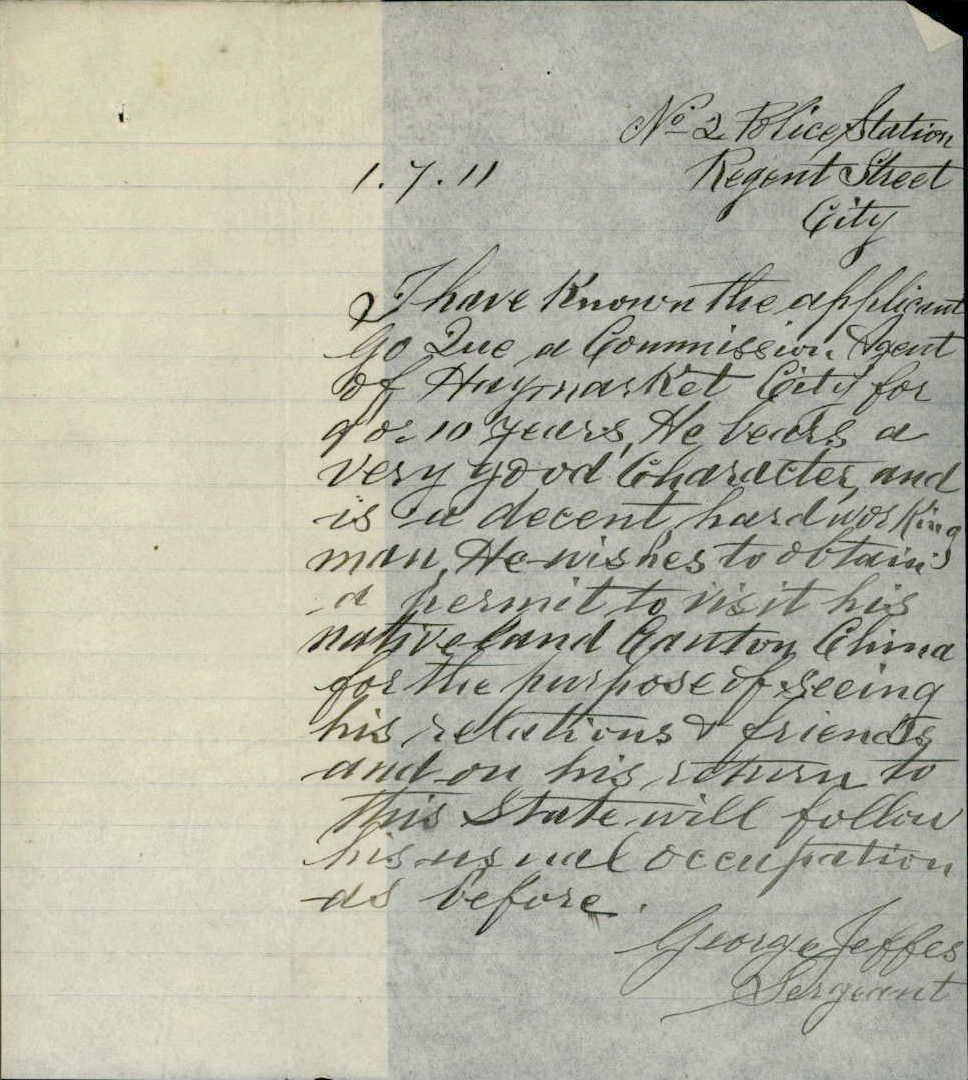 No 2 Police Station
1.7.11 Regent Street
City
I have Known the applicant
Go Que a Commission Agent
of Haymarket City for
9 or 10 years, He bears a
very good Character, and
is a decent, hard working
man, He wishes to obtain
a permit to visit his
native land Canton China
for the purpose of seeing
his relations & friends
and on his return to
this State will follow
his usual occupation
as before.
George Jeffes
Sergeant